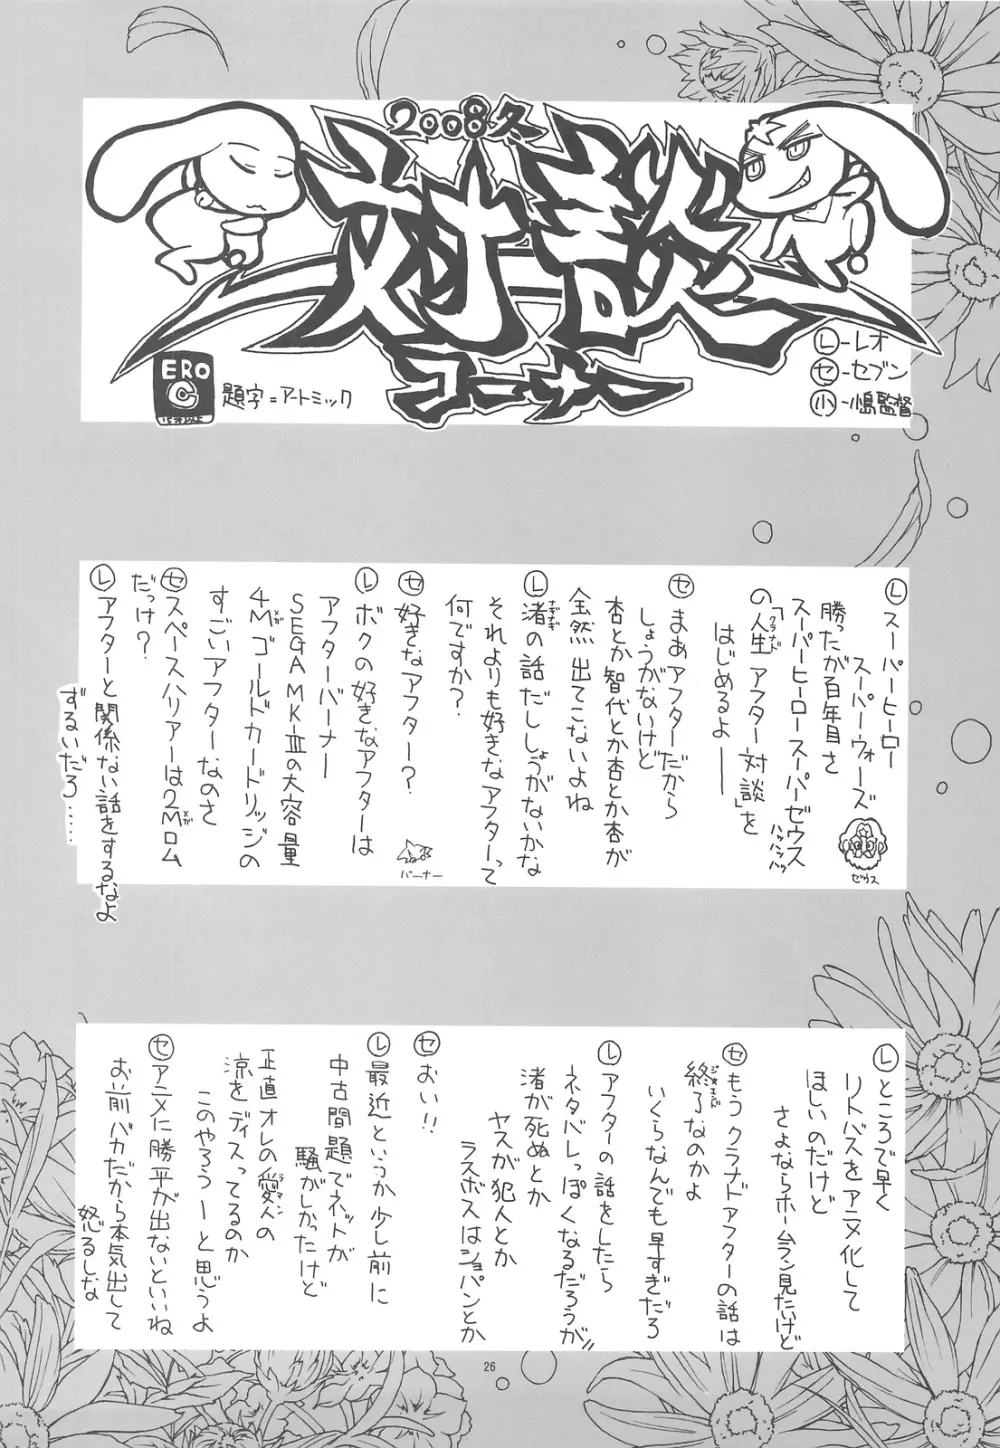 2008冬
対談
コーナー
ERO
C
題字=アートミック
Ⓛ-レオ
セ-セブン
小-小島監督
Ⓛスーパーヒーロー
スーパーウォーズ
勝ったが百年目さ
スーパーヒーロースーパーゼウス
ハッハッハッ
「人生アフター対談」を
クラナド
の
はじめるよーー
ゼウス
セまあアフターだから
しょうがないけど
杏とか智代とか杏とか杏が
全然出てこないよね
Ⓛ渚の話だししょうがないかな
なぎさ
それよりも好きなアフターって
何ですか?
セ好きなアフター?
バーナー
Ⓛボクの好きなアフターは
アフターバーナー
SEGA MK-Ⅲの大容量
4Mゴールドカードリッジの
メガ
すごいアフターなのさ
セスペースハリアーは2Mロム
メガ
だっけ?
Ⓛアフターと関係ない話をするなよ
ずるいだろ……
Ⓛところで早く
リトバスをアニメ化して
ほしいのだけど
さよならホームラン見たいけど
セもうクラナドアフターの話は
終了なのかよ
いくらなんでも早すぎだろ
Ⓛアフターの話をしたら
ネタバレっぽくなるだろうが!!
渚が死ぬとか
ヤスが犯人とか
ラスボスはショパンとか
セおい!!
Ⓛ最近というか少し前に
中古問題でネットが
騒がしかったけど
正直オレの愛人の
ラマン
涼をディスってるのか
このやろうーと思うよ
セアニメに勝平が出ないといいね
お前バカだから本気出して
怒るしな
26